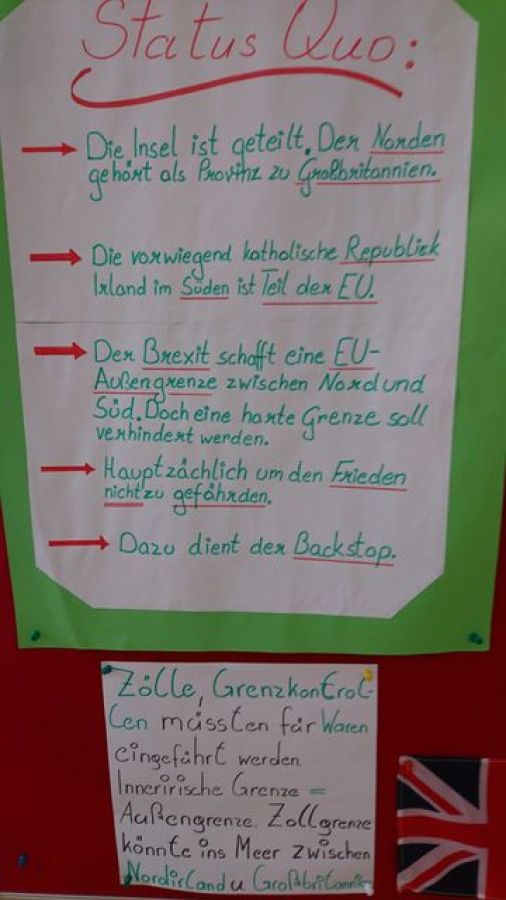 Status Quo:
Die Insel ist geteilt. Der Norden
gehört als Provinz zu Großbritannien.
Die vorwiegend katholische Republick
Irland im Süden ist Teil der EU.
Der Brexit schafft eine EU-
Außengrenze zwischen Nord und
Süd. Doch eine harte Grenze soll
verhindert werden.
Hauptzächlich um den Frieden
nicht zu gefährden.
Dazu dient der Backstop.
Zölle, Grenzkontrol-
len müssten für Waren
eingeführt werden.
Innerirische Grenze =
Außengrenze. Zollgrenze
könnte ins Meer zwischen
Nordirland u. Großbritannien